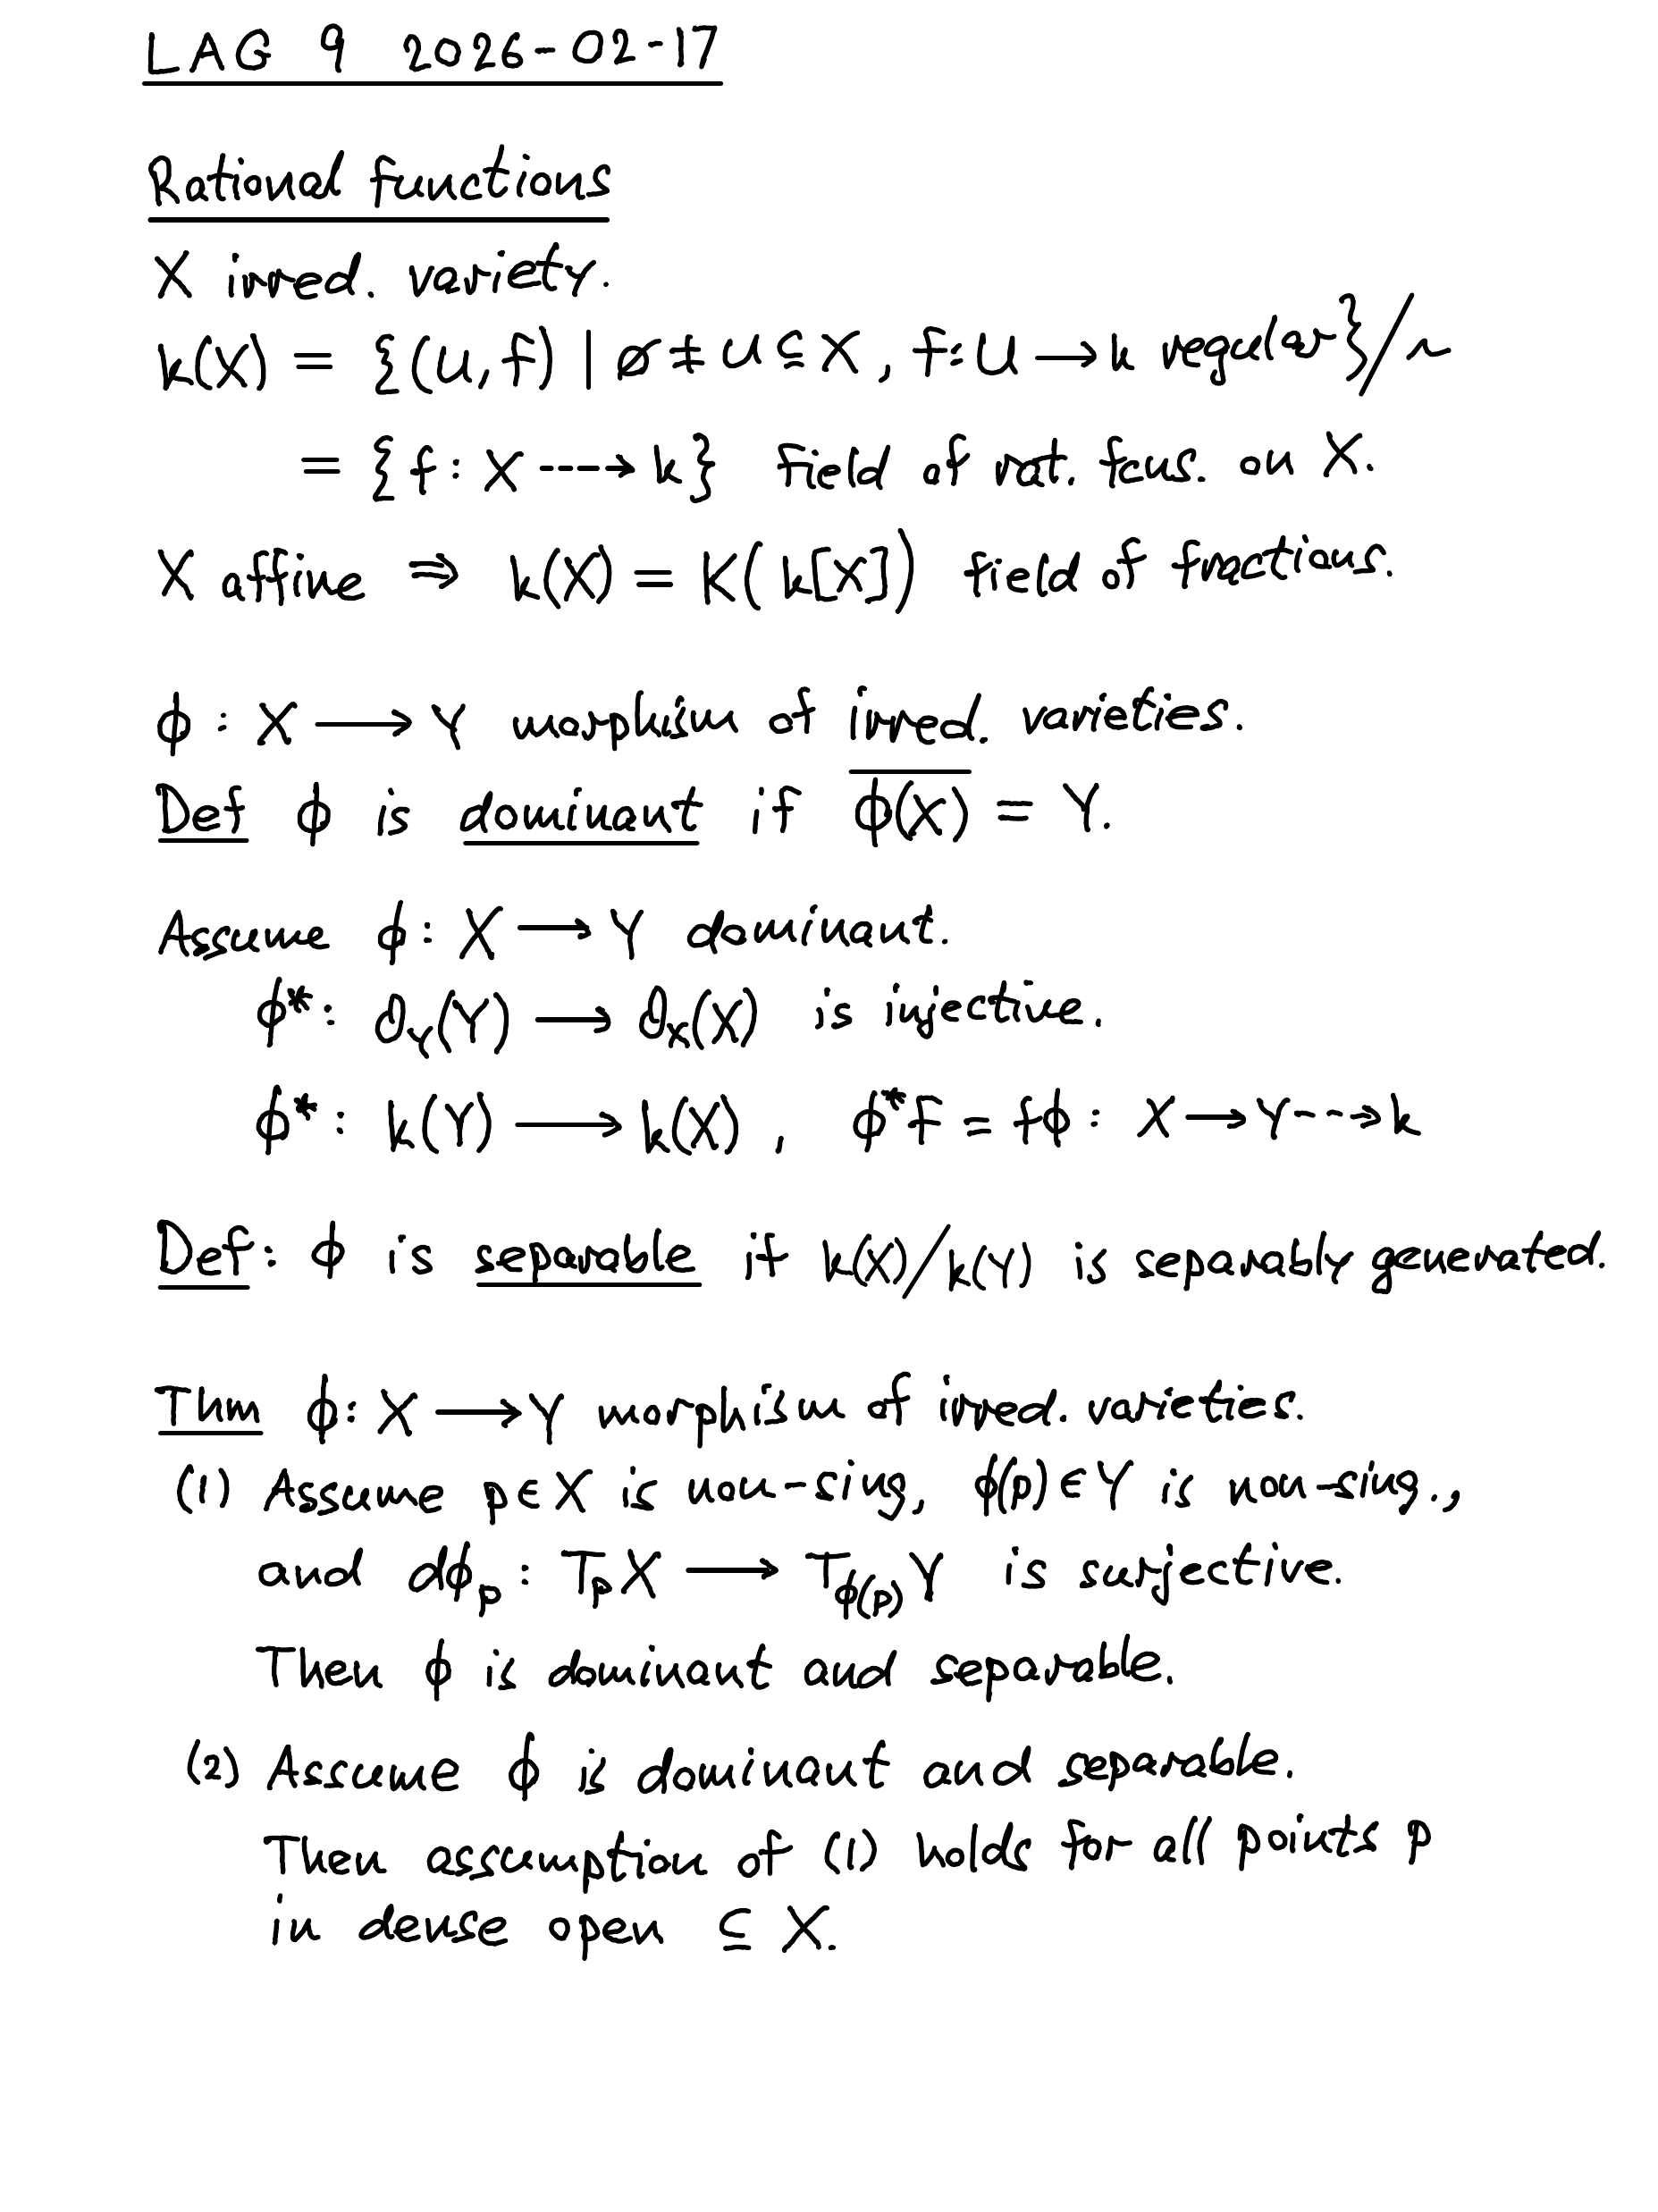 LAG 9 2026-02-17
Rational functions
X irred. variety.
k(X) = {(U,f) | ∅ ≠ U ⊆ X, f: U → k regular}/~
= {f: X ⇢ k} field of rat. fcns. on X.
X affine ⇒ k(X) = K(k[X]) field of fractions.
ϕ : X → Y morphism of irred. varieties.
Def ϕ is dominant if \overline{ϕ(X)} = Y.
Assume ϕ: X → Y dominant.
ϕ*: O_Y(Y) → O_X(X) is injective.
ϕ*: k(Y) → k(X), ϕ*f = fϕ: X → Y ⇢ k
Def: ϕ is separable if k(X)/k(Y) is separably generated.
Thm ϕ: X → Y morphism of irred. varieties.
(1) Assume p ∈ X is non-sing, ϕ(p) ∈ Y is non-sing.,
and dϕ_p : T_p X → T_{ϕ(p)} Y is surjective.
Then ϕ is dominant and separable.
(2) Assume ϕ is dominant and separable.
Then assumption of (1) holds for all points p
in dense open ⊆ X.